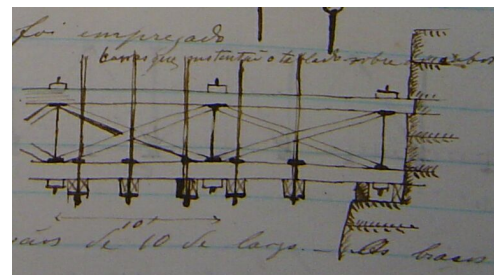 foi empregado
barras que sustentão o teclado sobre os cabos
10'
vãos de 10 de largo — Os braços